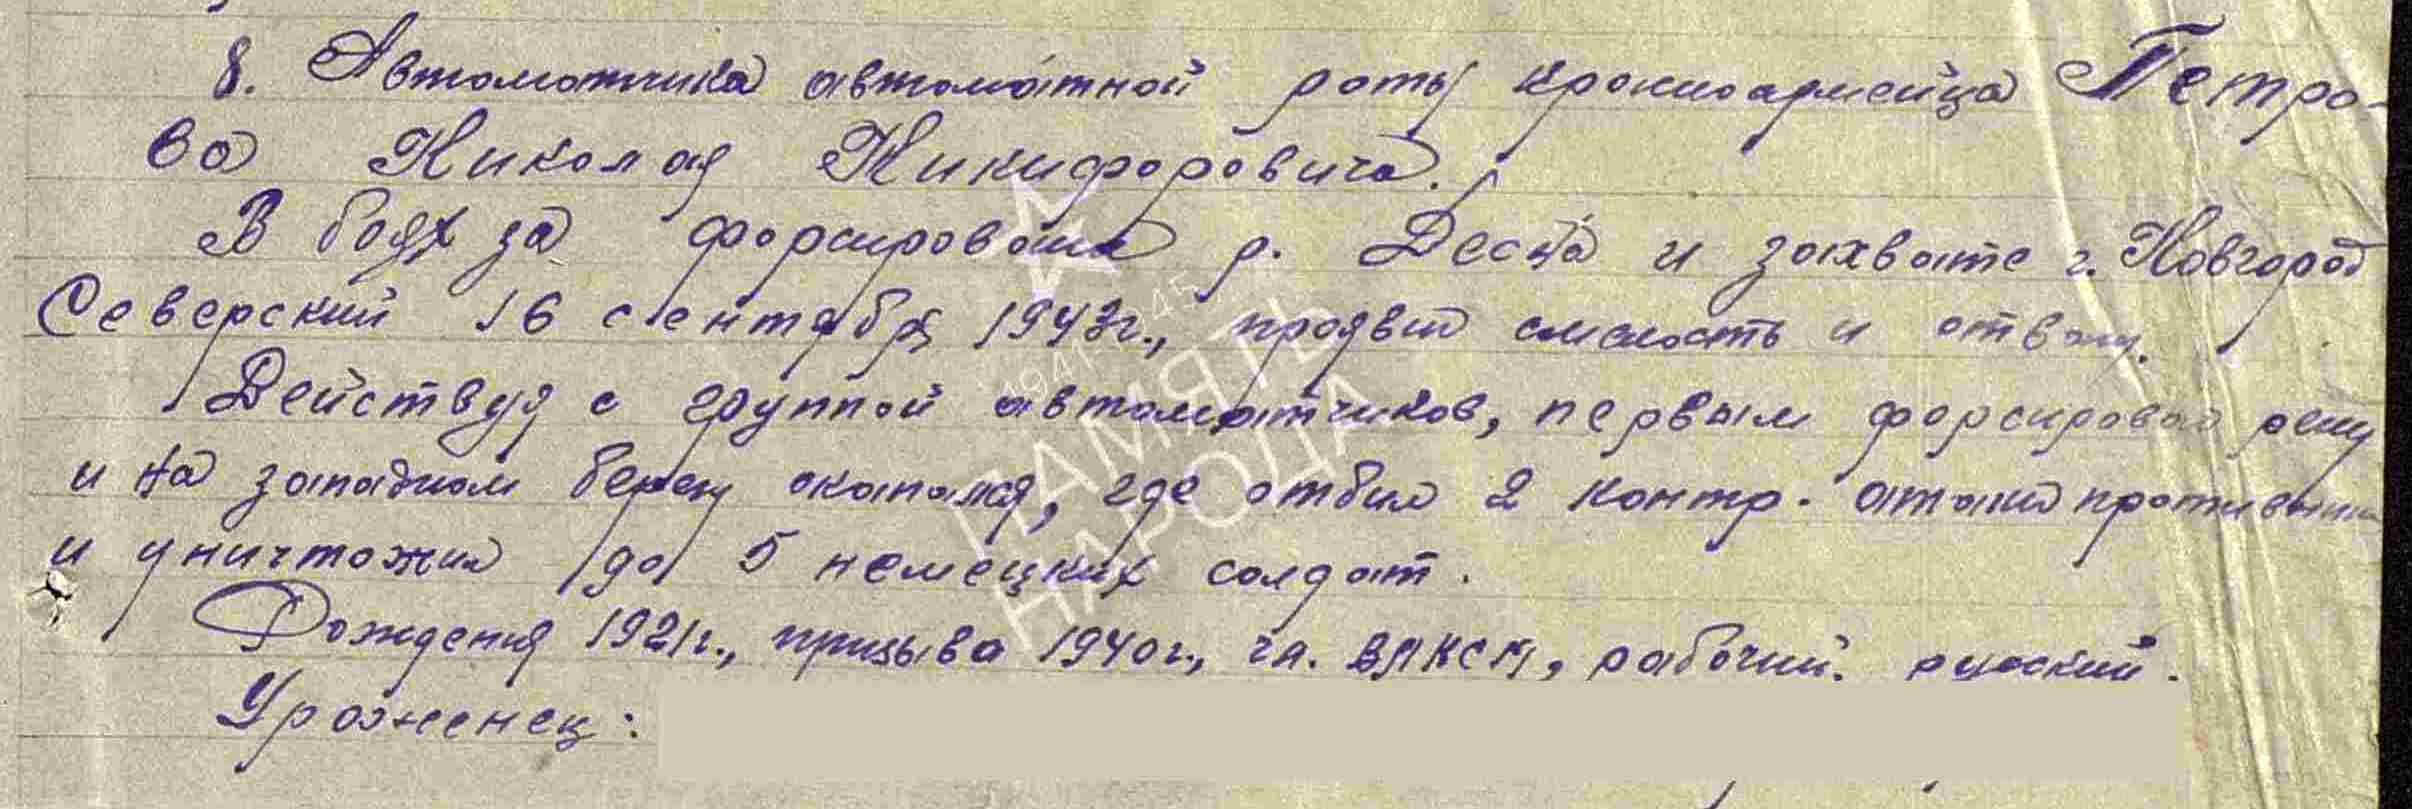 8. Автоматчика автоматной роты красноармейца Петро-
ва Николая Никифоровича.
В боях за форсирование р. Десна и захвате г. Новгород
Северский 16 сентября 1943г., проявил смелость и отвагу.
Действуя с группой автоматчиков, первым форсировал реку
и на западном берегу окопался, где отбил 2 контр. атаки противника
и уничтожил до 5 немецких солдат.
Рождения 1921г., призыва 1940г., чл. ВЛКСМ, рабочий. русский.
Уроженец:
1941-1945
ПАМЯТЬ
НАРОДА